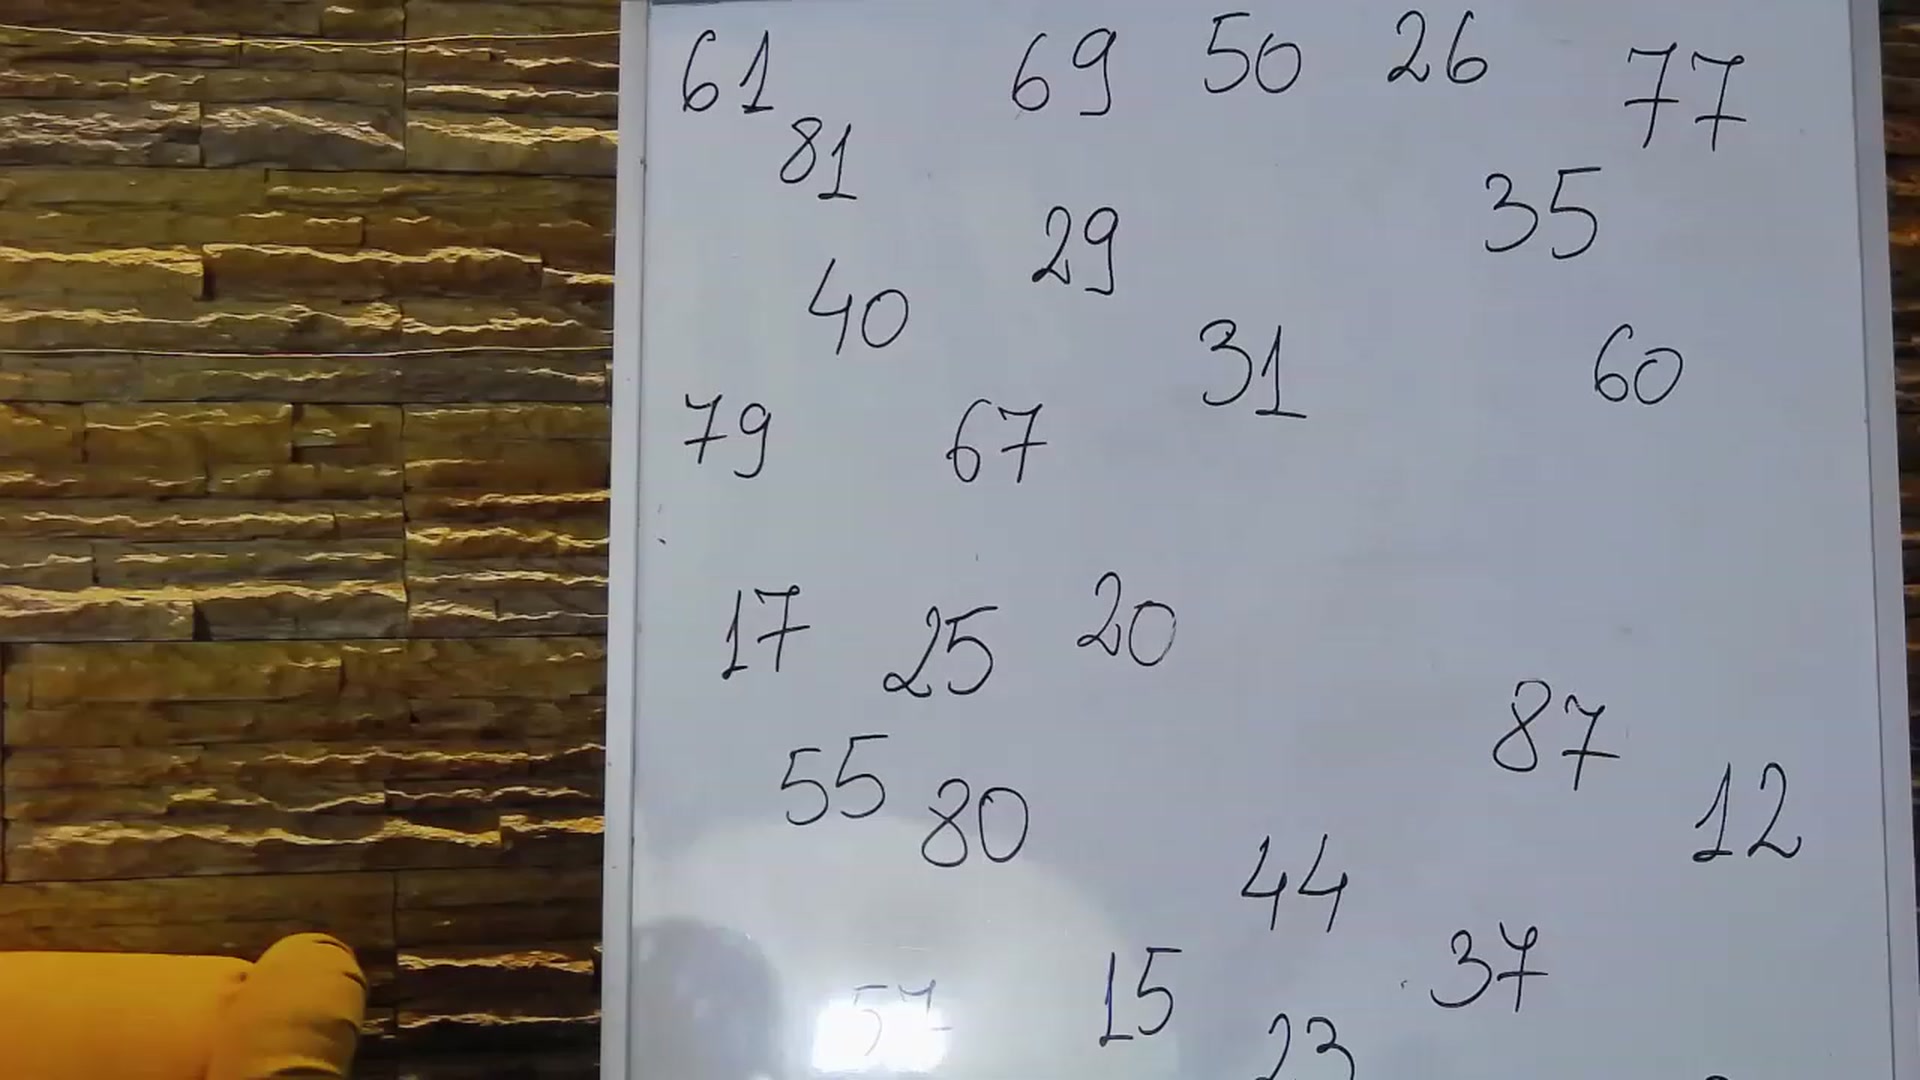 61 69 50 26 77
81
29 35
40 31 60
79 67
17 25 20
55 80 87 12
44
15 37
23